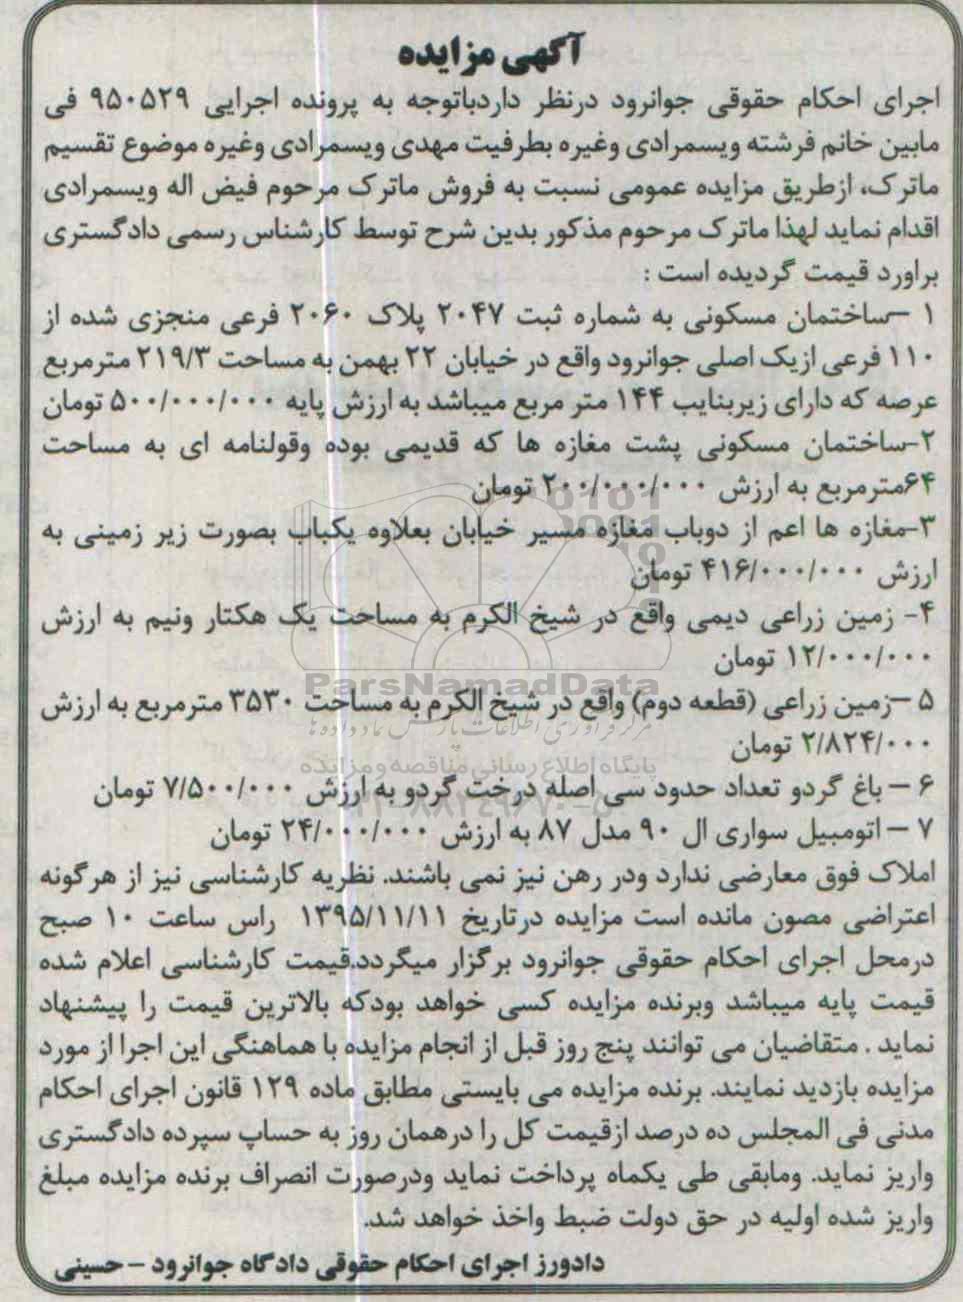 آگهی مزایده
اجرای احکام حقوقی جوانرود درنظر داردباتوجه به پرونده اجرایی ۹۵۰۵۲۹ فی
مابین خانم فرشته ویسمرادی وغیره بطرفیت مهدی ویسمرادی وغیره موضوع تقسیم
ماترک، ازطریق مزایده عمومی نسبت به فروش ماترک مرحوم فیض اله ویسمرادی
اقدام نماید لهذا ماترک مرحوم مذکور بدین شرح توسط کارشناس رسمی دادگستری
براورد قیمت گردیده است :
۱ –ساختمان مسکونی به شماره ثبت ۲۰۴۷ پلاک ۲۰۶۰ فرعی منجزی شده از
۱۱۰ فرعی ازیک اصلی جوانرود واقع در خیابان ۲۲ بهمن به مساحت ۲۱۹/۳ مترمربع
عرصه که دارای زیربنایب ۱۴۴ متر مربع میباشد به ارزش پایه ۵۰۰/۰۰۰/۰۰۰ تومان
۲-ساختمان مسکونی پشت مغازه ها که قدیمی بوده وقولنامه ای به مساحت
۶۴مترمربع به ارزش ۲۰۰/۰۰۰/۰۰۰ تومان
۳-مغازه ها اعم از دوباب مغازه مسیر خیابان بعلاوه یکباب بصورت زیر زمینی به
ارزش ۴۱۶/۰۰۰/۰۰۰ تومان
۴- زمین زراعی دیمی واقع در شیخ الکرم به مساحت یک هکتار ونیم به ارزش
۱۲/۰۰۰/۰۰۰ تومان
ParsNamadData
۵ –زمین زراعی (قطعه دوم) واقع در شیخ الکرم به مساحت ۳۵۳۰ مترمربع به ارزش
مرکز فرآوری اطلاعات پارس نماد داده ها
۲/۸۲۴/۰۰۰ تومان
پایگاه اطلاع رسانی مناقصه و مزایده
۶ – باغ گردو تعداد حدود سی اصله درخت گردو به ارزش ۷/۵۰۰/۰۰۰ تومان
۷ – اتومبیل سواری ال ۹۰ مدل ۸۷ به ارزش ۲۴/۰۰۰/۰۰۰ تومان
املاک فوق معارضی ندارد ودر رهن نیز نمی باشند. نظریه کارشناسی نیز از هرگونه
اعتراضی مصون مانده است مزایده درتاریخ ۱۳۹۵/۱۱/۱۱ راس ساعت ۱۰ صبح
درمحل اجرای احکام حقوقی جوانرود برگزار میگردد.قیمت کارشناسی اعلام شده
قیمت پایه میباشد وبرنده مزایده کسی خواهد بودکه بالاترین قیمت را پیشنهاد
نماید . متقاضیان می توانند پنج روز قبل از انجام مزایده با هماهنگی این اجرا از مورد
مزایده بازدید نمایند. برنده مزایده می بایستی مطابق ماده ۱۲۹ قانون اجرای احکام
مدنی فی المجلس ده درصد ازقیمت کل را درهمان روز به حساپ سپرده دادگستری
واریز نماید. ومابقی طی یکماه پرداخت نماید ودرصورت انصراف برنده مزایده مبلغ
واریز شده اولیه در حق دولت ضبط واخذ خواهد شد.
دادورز اجرای احکام حقوقی دادگاه جوانرود – حسینی